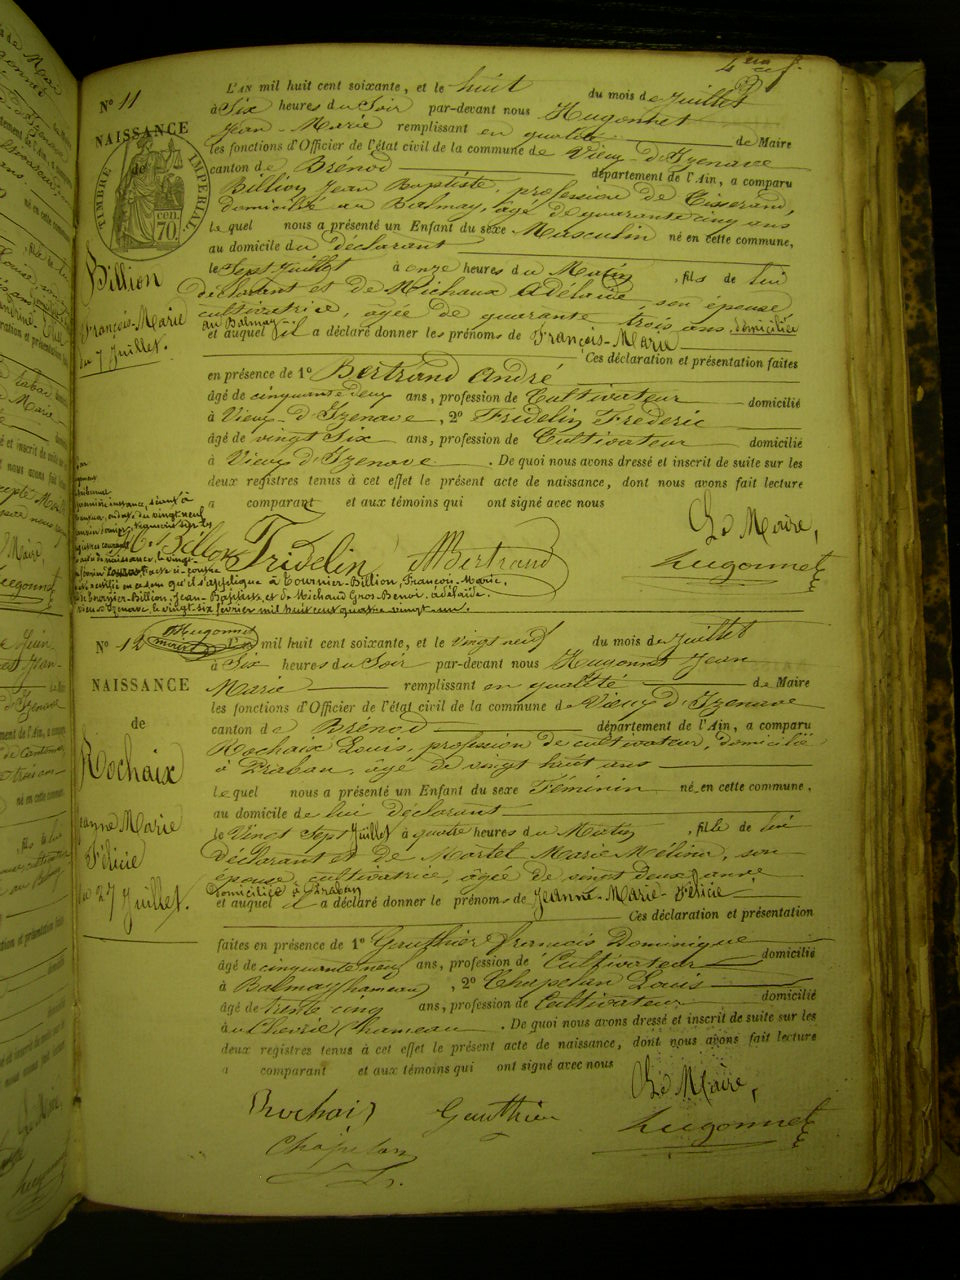 Nº 11
NAISSANCE
de
TIMBRE IMPÉRIAL
70 cen.
Billion
François-Marie
du 7 Juillet.
L'AN mil huit cent soixante, et le huit du mois de Juillet
à Six heures du Soir par-devant nous Hugonnet
Jean-Marie remplissant en qualité de Maire
les fonctions d'Officier de l'état civil de la commune de Vieu-d'Izenave
canton de Brénod département de l'Ain, a comparu
Billion Jean Baptiste, profession de Tisserand,
domicilié au Balmay, âgé de quarante cinq ans
lequel nous a présenté un Enfant du sexe Masculin né en cette commune,
au domicile du déclarant
le Sept Juillet à onze heures du Matin, fils de lui
déclarant et de Michaux Adélaïde, son épouse
cultivatrice, agée de quarante trois ans domiciliée
au Balmay
et auquel il a déclaré donner les prénoms de François-Marie
Ces déclaration et présentation faites
en présence de 1º Bertrand André
âgé de cinquante deux ans, profession de Cultivateur domicilié
à Vieu-d'Izenave, 2º Fridelin Frederic
âgé de vingt Six ans, profession de Cultivateur domicilié
à Vieu d'Izenave. De quoi nous avons dressé et inscrit de suite sur les
deux registres tenus à cet effet le présent acte de naissance, dont nous avons fait lecture
a comparant et aux témoins qui ont signé avec nous
Le Maire,
Billion Fridelin Bertrand Hugonnet
tribunal
première instance, séant à
du vingt neuf
sur les
acte de naissance, le vingt
acte ci-contre
rectifié en ce sens qu'il s'applique à Tournier-Billion, François-Marie,
de Tournier-Billion, Jean-Baptiste, et de Michaud Gros-Benoi, adélaïde.
Vieu d'Izenave, le vingt six février mil huit cent quatre vingt-un.
Hugonnet
maire
Nº 12
NAISSANCE
de
Rochaix
Jeanne Marie
Félicie
du 27 Juillet.
L'an mil huit cent soixante, et le vingt neuf du mois de Juillet
à Six heures du Soir par-devant nous Hugonnet Jean
Marie remplissant en qualité de Maire
les fonctions d'Officier de l'état civil de la commune de Vieu d'Izenave
canton de Brénod département de l'Ain, a comparu
Rochaix Louis, profession de cultivateur, domicilié
à Praban, âgé de vingt huit ans
lequel nous a présenté un Enfant du sexe Féminin né en cette commune,
au domicile de lui déclarant
le Vingt Sept Juillet à quatre heures du Matin, fille de lui
déclarant et de Martel Marie Mélina, son
épouse, cultivatrice, agée de vingt deux ans
domiciliée à Praban
et auquel il a déclaré donner le prénoms de Jeanne-Marie-Félicie
Ces déclaration et présentation
faites en présence de 1º Gauthier françois Dominique
âgé de cinquante neuf ans, profession de Cultivateur domicilié
à Balmay hameau, 2º Chapelan Louis
âgé de trente cinq ans, profession de Cultivateur domicilié
à hameau. De quoi nous avons dressé et inscrit de suite sur les
deux registres tenus à cet effet le présent acte de naissance, dont nous avons fait lecture
a comparant et aux témoins qui ont signé avec nous
Le Maire,
Rochaix Gauthier Hugonnet
Chapelan